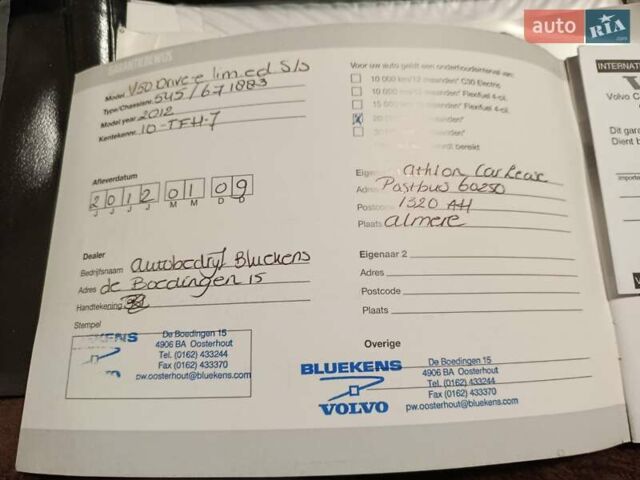 GARANTIEBEWIJS
Model V50 Drive-e limited S/S
Type/Chassisnr. 545/671883
Model year 2012
Kentekennr. 10-TFH-7
Afleverdatum
2 0 1 2 0 1 0 9
J J J J M M D D
Dealer
Bedrijfsnaam Autobedryf Bluekens
Adres de Boedingen 15
Handtekening
Stempel
De Boedingen 15
4906 BA Oosterhout
Tel. (0162) 433244
Fax (0162) 433370
pw.oosterhout@bluekens.com
Voor uw auto geldt een onderhoudsinterval van:
10 000 km/12 maanden* C30 Electric
10 000 km/12 maanden* Flexifuel 4-cil.
15 000 maanden* Flexifuel 4-cil.
20 maanden*
30 maanden*
wordt bereikt
Athlon Car Lease
Adres Postbus 60250
Postcode 1320 AH
Plaats almere
Eigenaar 2
Adres
Postcode
Plaats
Overige
BLUEKENS
VOLVO
De Boedingen 15
4906 BA Oosterhout
Tel. (0162) 433244
Fax (0162) 433370
pw.oosterhout@bluekens.com
INTERNATI
Volvo Ca
Dit gara
Dient b
auto RIA .com